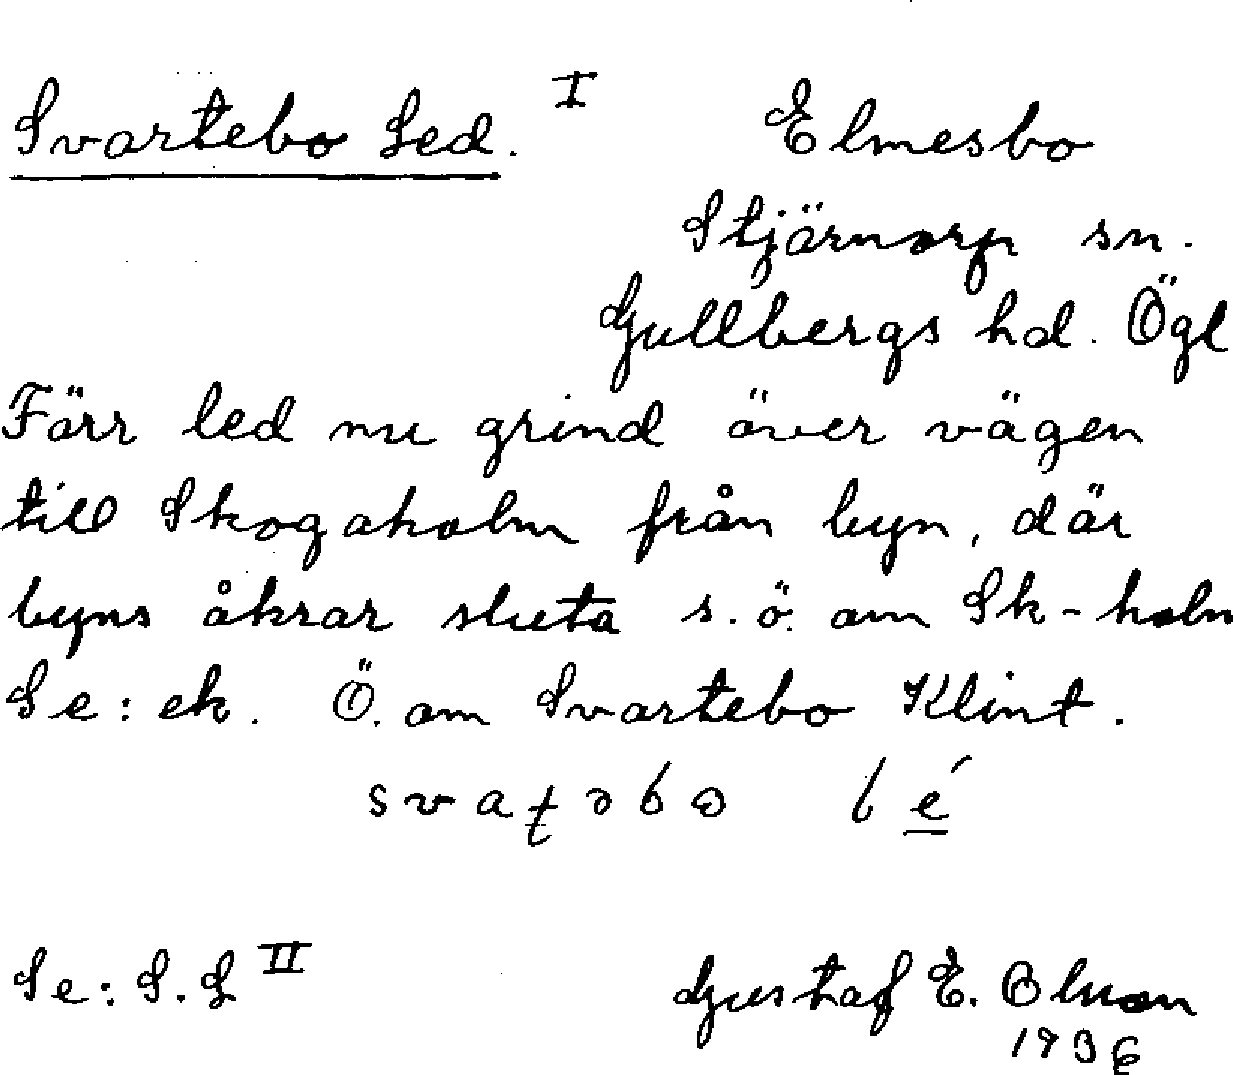 Svartebo Led. I
Elmesbo
Stjärnorp sn.
Gullbergs hd. Ögl
Förr led nu grind över vägen
till Skogaholm från byn, där
byns åkrar sluta s. ö. om Sk-holm
Se: ek. Ö. om Svartebo Klint.
Se: S. L II
Gustaf E. Olson
1936